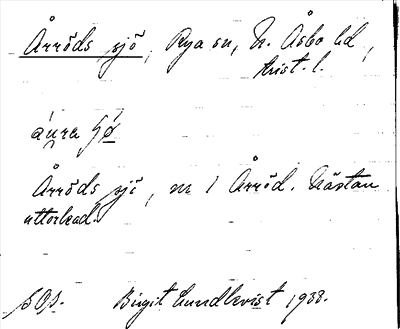 Årröds sjö, Rya sn, N. Åsbo hd,
Krist. l.
Årröds sjö, nr 1 Årröd. Nästan
uttorkad.
SOJ. Birgit Lundkvist 1938.